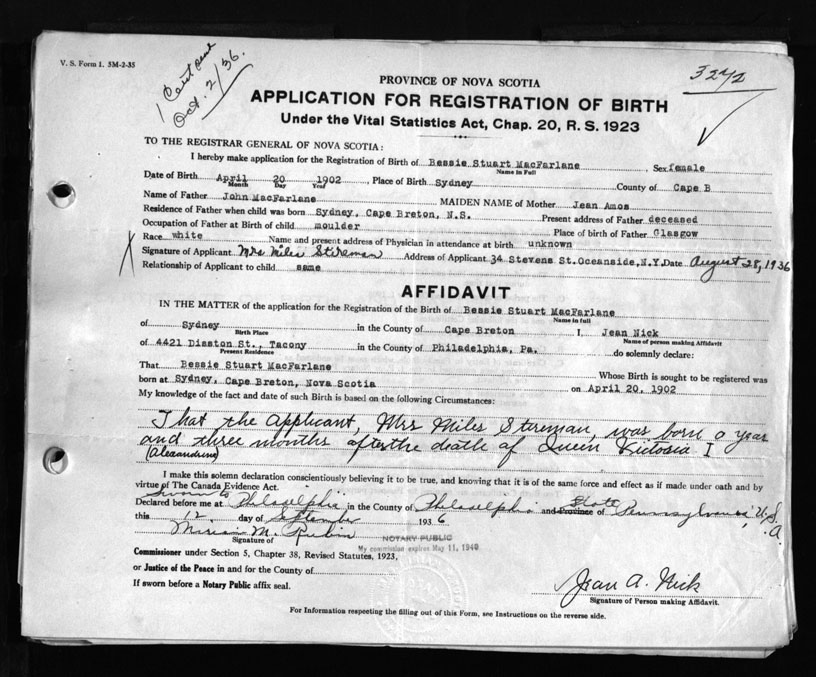 V. S. Form 1. 5M-2-35
1 Cert
Oct. 2/36.
3272
PROVINCE OF NOVA SCOTIA
APPLICATION FOR REGISTRATION OF BIRTH
Under the Vital Statistics Act, Chap. 20, R. S. 1923
TO THE REGISTRAR GENERAL OF NOVA SCOTIA:
I hereby make application for the Registration of Birth of Bessie Stuart MacFarlane, Sex female
Name in Full
Date of Birth April 20 1902 Place of Birth Sydney County of Cape B
Month Day Year
Name of Father John MacFarlane MAIDEN NAME of Mother Jean Amos
Residence of Father when child was born Sydney, Cape Breton, N.S. Present address of Father deceased
Occupation of Father at Birth of child moulder Place of birth of Father Glasgow
Race white Name and present address of Physician in attendance at birth unknown
X Signature of Applicant Mrs Miles Stireman Address of Applicant 34 Stevens St. Oceanside, N.Y. Date August 28, 1936
Relationship of Applicant to child same
AFFIDAVIT
IN THE MATTER of the application for the Registration of the Birth of Bessie Stuart MacFarlane
Name in full
of Sydney in the County of Cape Breton I, Jean Nick
Birth Place Name of person making Affidavit
of 4421 Disston St., Tacony in the County of Philadelphia, Pa. do solemnly declare:
Present Residence
That Bessie Stuart MacFarlane Whose Birth is sought to be registered was
born at Sydney, Cape Breton, Nova Scotia on April 20, 1902
My knowledge of the fact and date of such Birth is based on the following Circumstances:
That the Applicant, Mrs Miles Stireman, was born a year
and three months after the death of Queen Victoria I
(Alexandrine)
I make this solemn declaration conscientiously believing it to be true, and knowing that it is of the same force and effect as if made under oath and by
virtue of The Canada Evidence Act.
Sworn to State
Declared before me at Philadelphia in the County of Philadelphia and Province of Pennsylvania, U.S.A.
this 12 day of September 1936
Miriam M. Rubin NOTARY PUBLIC
Signature of My commission expires May 11, 1940
Commissioner under Section 5, Chapter 38, Revised Statutes, 1923,
or Justice of the Peace in and for the County of
If sworn before a Notary Public affix seal.
Jean A. Nick
Signature of Person making Affidavit.
For Information respecting the filling out of this Form, see Instructions on the reverse side.